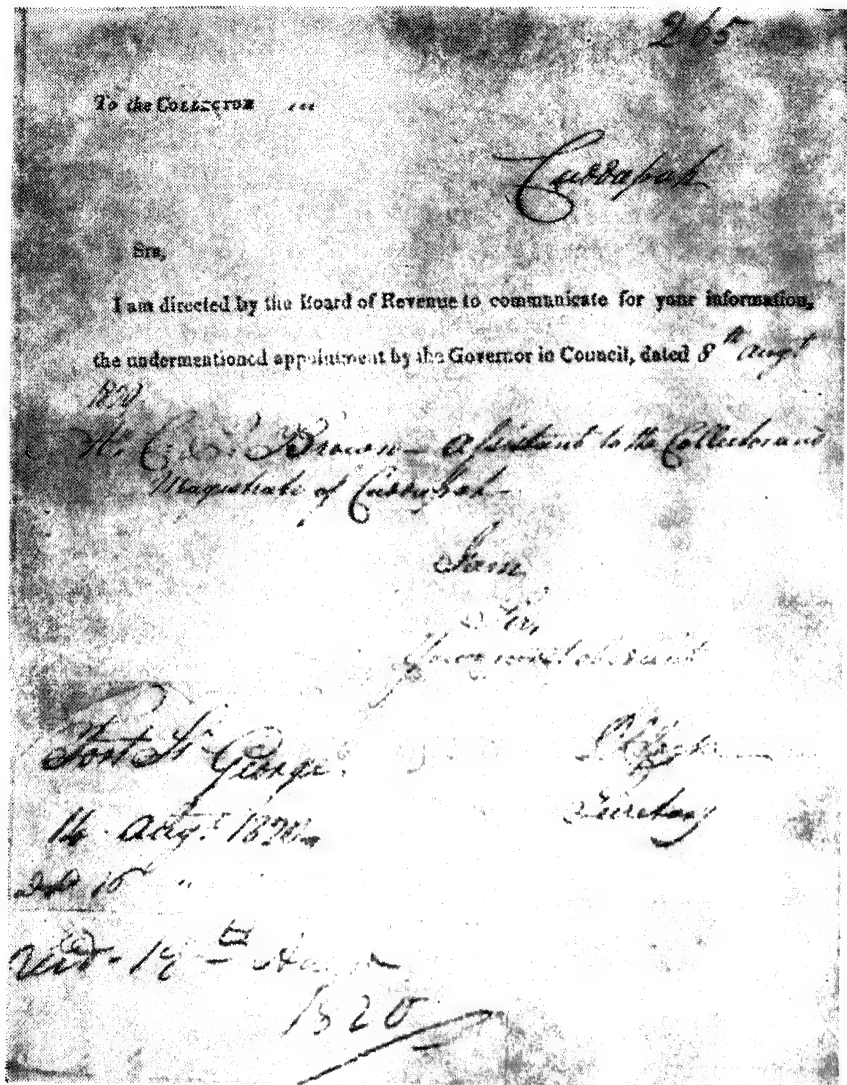 265
To the COLLECTOR ...
Cuddapah
SIR,
I am directed by the Board of Revenue to communicate for your information,
the undermentioned appointment by the Governor in Council, dated 8th Augt
1820
Mr. C. P. Brown – Assistant to the Collector and
Magistrate of Cuddapah –
I am
Sir,
Your most obedient
Fort St. George.
14 Augt. 1820
Secretary
15 "
Recd. 19th Augt
1820